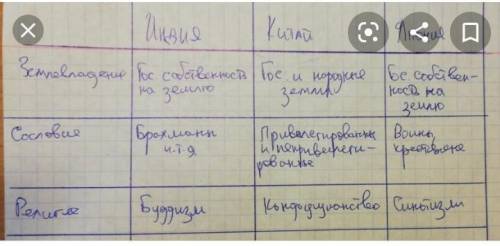 Индия Китай Япония
Землевладение Гос собственность на землю Гос. и народные земли Гос. собственность на землю
Сословие Брахманы и.т.д Привелегированные и непривелегированные Воины, крестьяне
Религия Буддизм Конфуцианство Синтоизм